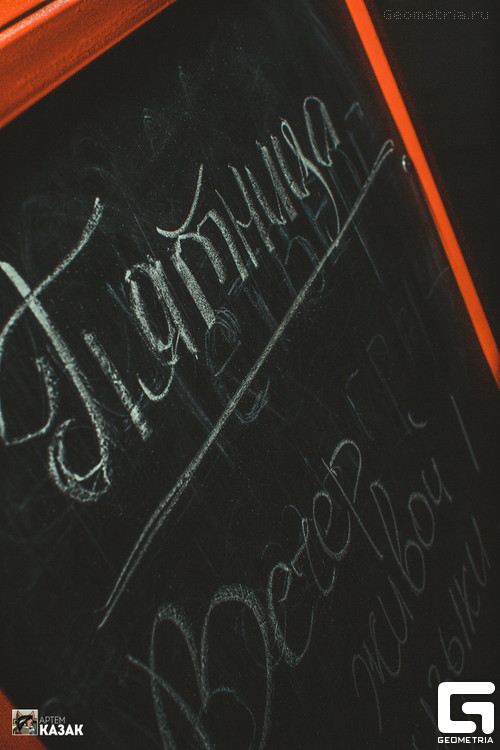 Geometria.ru
Пятница
Вечер
живой
АРТЕМ
КАЗАК
GEOMETRIA